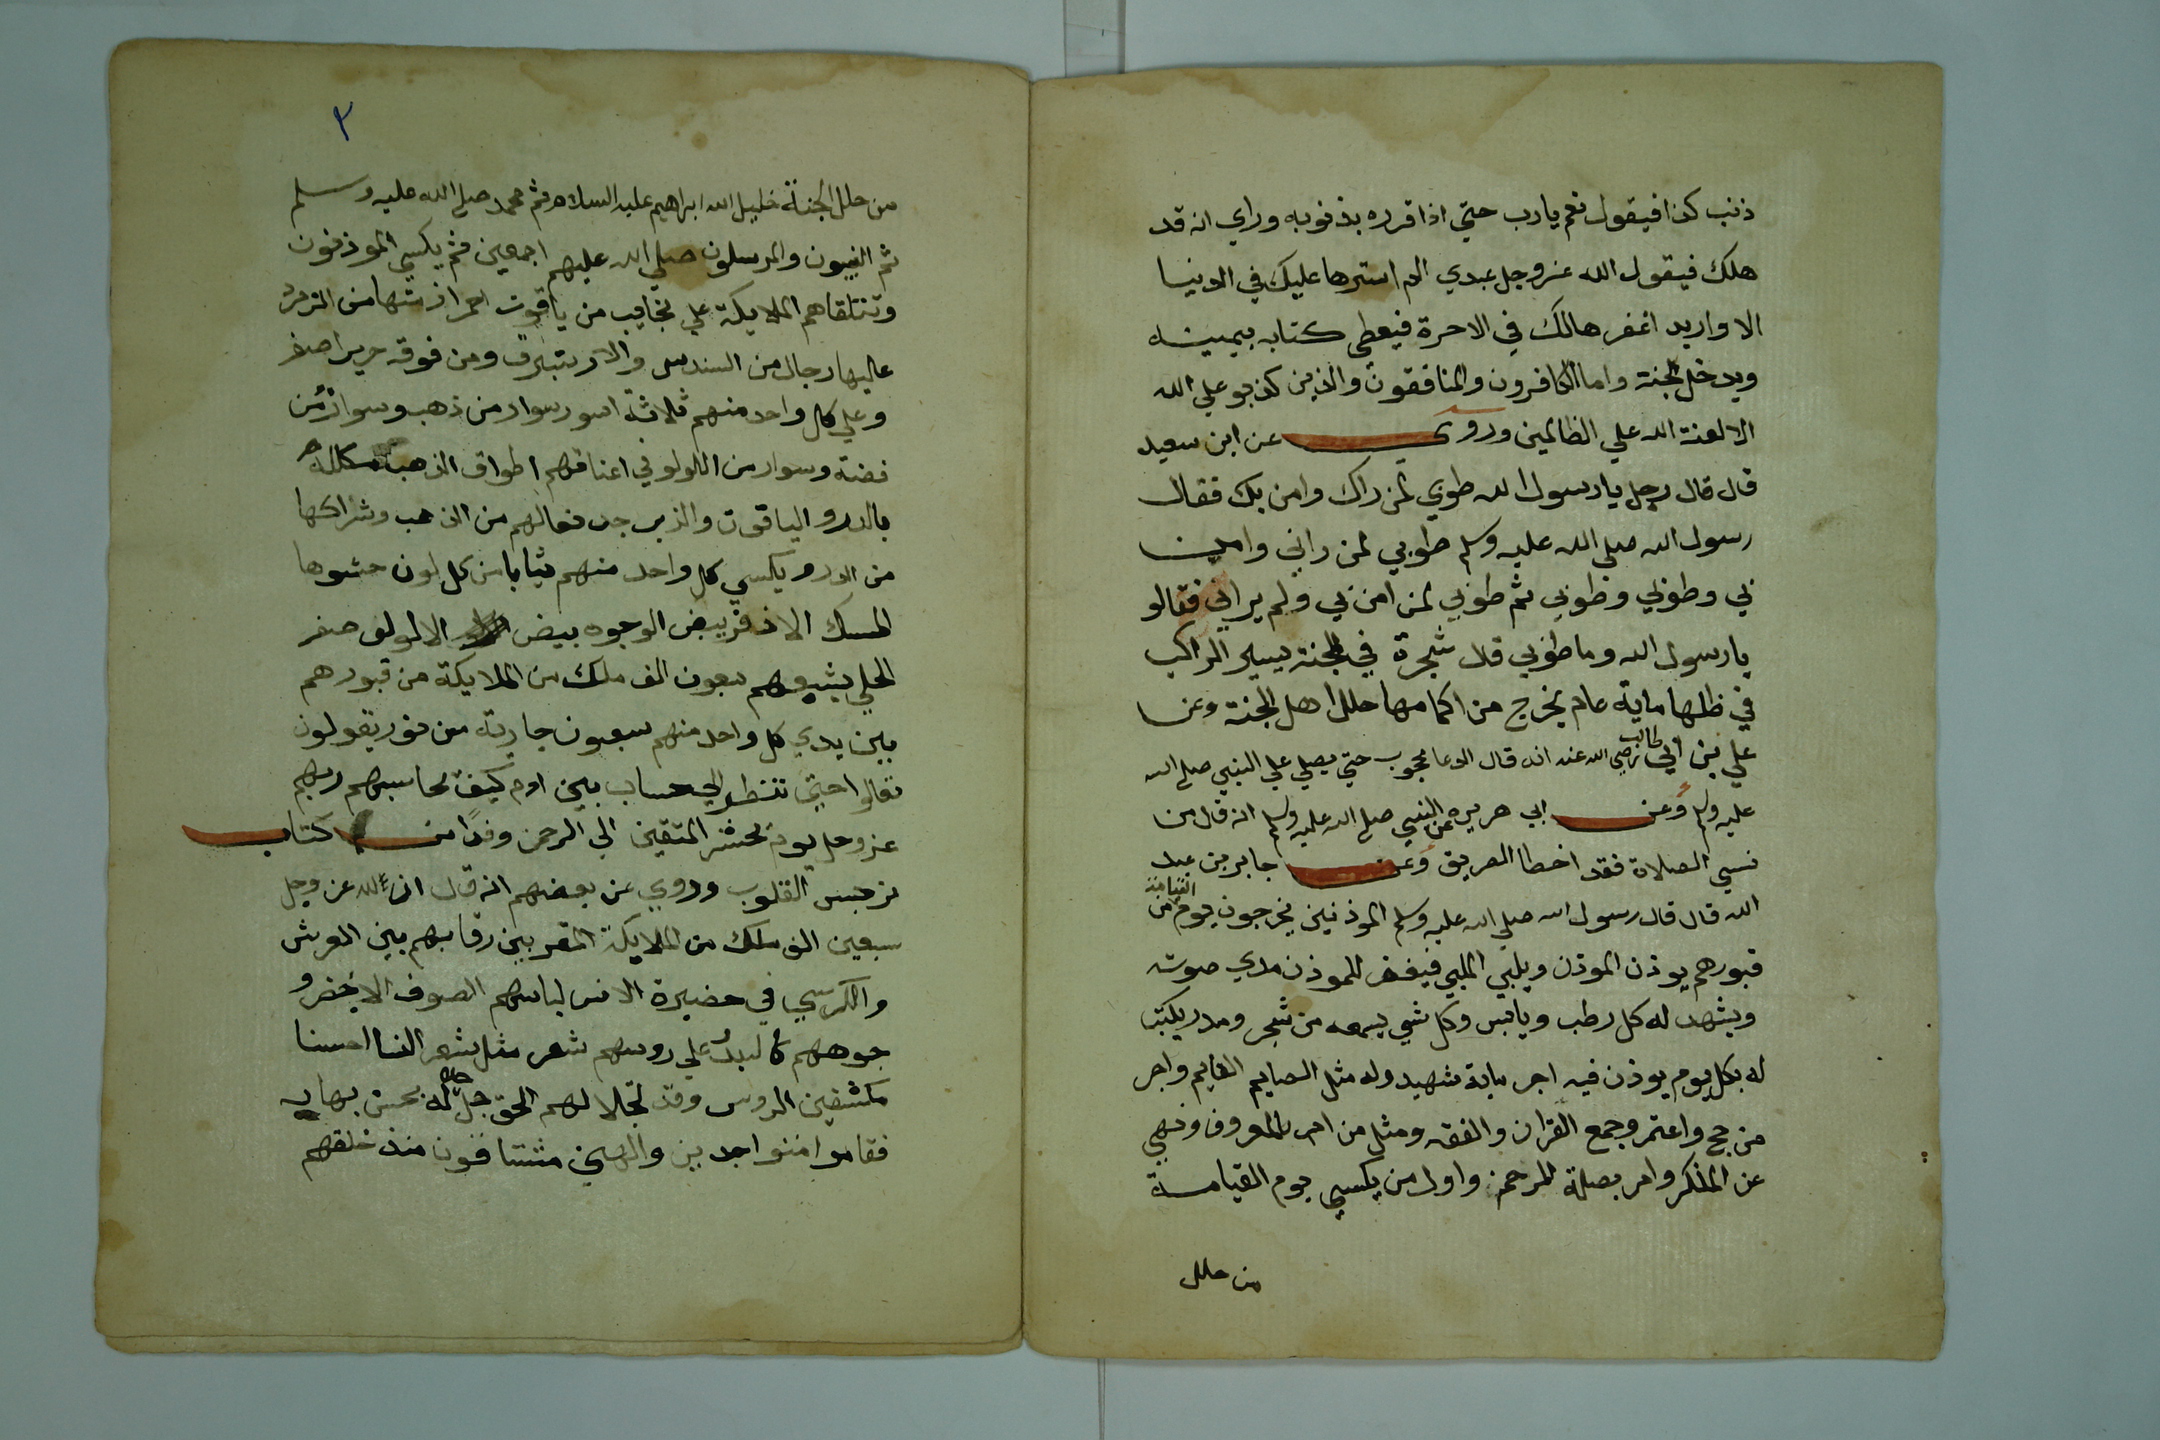 ذنب كذا فيقول نعم يارب حتي اذا قرره بذنوبه وراي انه قد
هلك فيقول الله عزوجل عبدي الم استرها عليك في الدنيا
الا واريد اغفرهالك في الاخرة فيعطي كتابه بيمينه
ويدخل الجنة واما الكافرون والمنافقون والذين كذبو علي الله
الا لعنة الله علي الظالمين وروي عن ابن سعيد
قال قال رجل يا رسول الله طوبي لمن راك وامن بك فقال
رسول الله صلي الله عليه وسلم طوبي لمن راني وامن
بي وطوبي وطوبي ثم طوبي لمن امن بي ولم يراني فقالو
يا رسول الله وما طوبي قال شجرة في الجنة يسير الراكب
في ظلها ماية عام يخرج من اكمامها حلل اهل الجنة وعن
علي بن ابي طالب رضي الله عنه انه قال الدعا محجوب حتي يصلي علي النبي صلي الله
عليه وسلم وعن ابي هريره عن النبي صلي الله عليه وسلم انه قال من
نسي الصلاة فقد اخطا الطريق وعن جابر بن عبد
الله قال قال رسول الله صلي الله عليه وسلم الموذنين يخرجون يوم القيامة من
قبورهم يوذن الموذن ويلبي الملبي فيغفر للموذن مدي صوته
ويشهد له كل رطب ويابس وكل شي يسمعه من شجر ومدر يكتب
له بكل يوم يوذن فيه اجر ماية شهيد وله مثل الصايم القايم واجر
من حج واعتمر وجمع القران والفقه ومثل من امر بالمعروف ونهي
عن المنكر وامر بصلة الرحم واول من يكسي يوم القيامة
من حلل
٣
من حلل الجنة خليل الله ابراهيم عليه السلام ثم محمد صلي الله عليه وسلم
ثم النبيون والمرسلون صلي الله عليهم اجمعين ثم يكسي الموذنون
وتتلقاهم الملايكة علي نجايب من ياقوت احمر ازمتها من الزمرد
عاليها رحال من السندس والاستبرق ومن فوقه حرير اصفر
وعلي كل واحد منهم ثلاثة اسور سوار من ذهب وسوار من
فضة وسوار من اللولو في اعناقهم اطواق الذهب مكلله
بالدر والياقوت والزبرجد نعالهم من الذهب وشراكها
من الدر ويكسي كل واحد منهم ثيابا من كل لون حشوها
المسك الاذفر بيض الوجوه بيض الالولو صفر
الحلي يشيعهم سبعون الف ملك من الملايكة من قبورهم
بين يدي كل واحد منهم سبعون جارية من نور يقولون
تعالوا حتي ننظر الي حساب بين ادم كيف يحاسبهم ربهم
عزوجل يوم نحشر المتقين الي الرحمن وفدا من كتاب
نرجس القلوب وروي عن بعضهم انه قال ان لله عز وجل
سبعين الف ملك من الملايكة المقربين رقابهم بين العرش
والكرسي في حضيرة الانس لباسهم الصوف الاخضر و
جوههم كالبدر علي روسهم شعر مثل شعر النسا احسنا
مكشفين الروس وقد تجلا لهم الحق جل جلاله بحسن بهايه
فقاموا متواجدين والهين مشتاقون منذ خلقهم